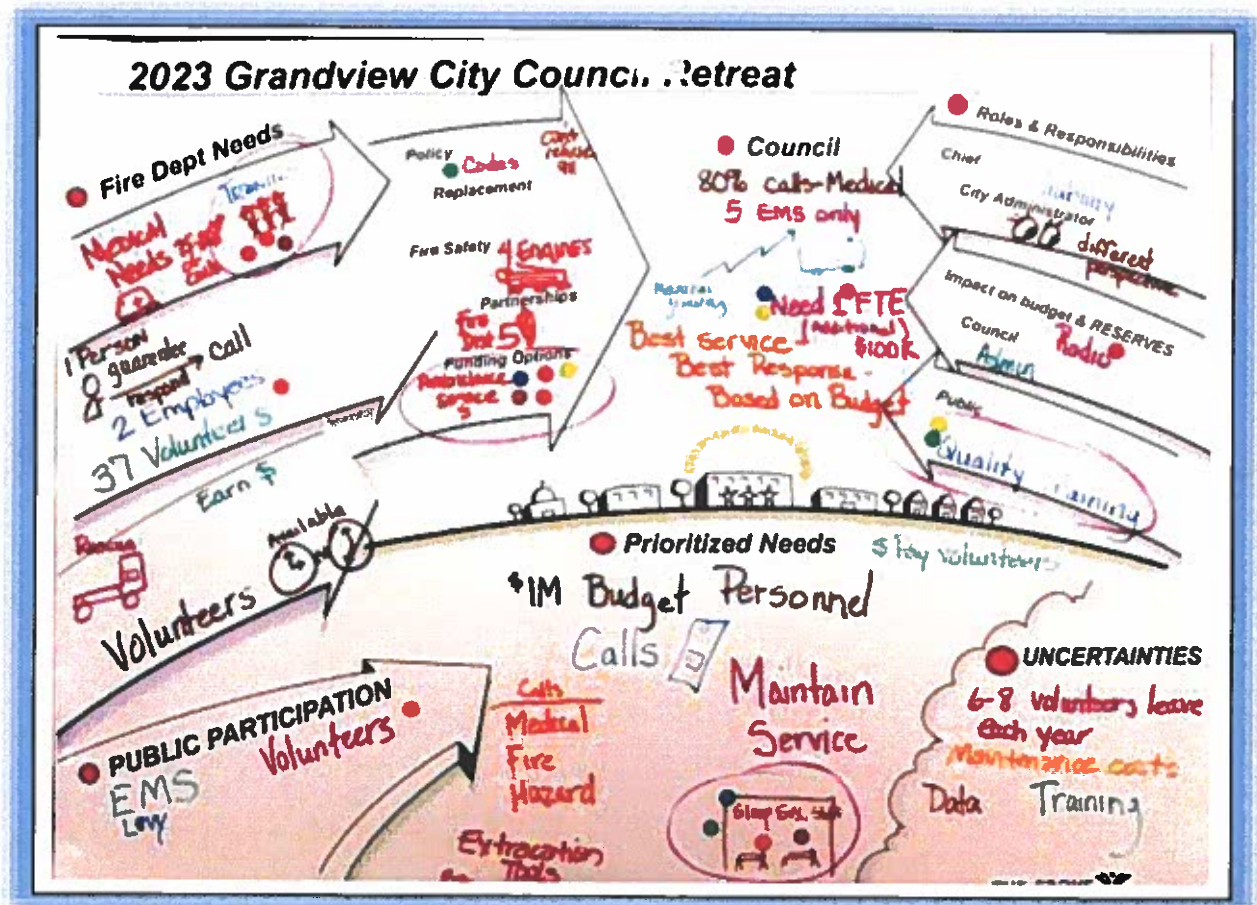 2023 Grandview City Council Retreat
Fire Dept Needs
MEDICAL
Needs
1 Person
guarantee
respond → Call
2 Employees
37 Volunteers
Earn $
Rescue
Available
Volunteers
Policy
Codes
Replacement
Fire Safety
4 ENGINES
Partnerships
Fire
Dist 5
Funding Options
Ambulance
Service
$
Council
80% calls-Medical
5 EMS only
Need 1 FTE
(Additional)
$100K
Best Service
Best Response -
Based on Budget
Roles & Responsibilities
Chief
City Administrator
different
perspective
Impact on budget & RESERVES
Council
Radio
Admin
Public
Quality Training
Prioritized Needs
$ Pay volunteers
$1M Budget Personnel
Calls
Maintain
Service
PUBLIC PARTICIPATION
Volunteers
EMS
Levy
Calls
Medical
Fire
Hazard
Extracation
Tools
UNCERTAINTIES
6-8 volunteers leave
each year
Maintenance costs
Data Training